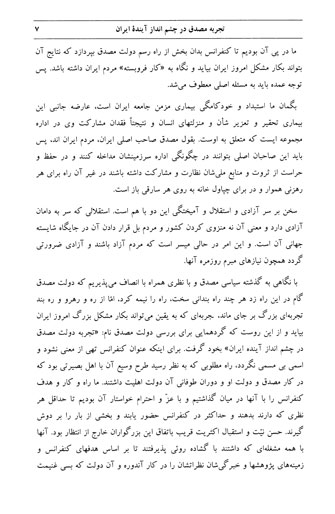 تجربه مصدق در چشم انداز آیندهٔ ایران ۷
ما در پی آن بودیم تا کنفرانس بدان بخش از راه رسم دولت مصدق بپردازد که نتایج آن
بتواند بکار مشکل امروز ایران بیاید و نگاه به «کار فروبسته» مردم ایران داشته باشد. پس
توجه عمده باید به مسئله اصلی معطوف می‌شد.
بگمان ما استبداد و خودکامگی بیماری مزمن جامعه ایران است، عارضه جانبی این
بیماری تحقیر و تعزیر شأن و منزلتهای انسان و نتیجتاً فقدان مشارکت وی در اداره
مجموعه ایست که متعلق به اوست. بقول مصدق صاحب اصلی ایران، مردم ایران اند، پس
باید این صاحبان اصلی بتوانند در چگونگی اداره سرزمینشان مداخله کنند و در حفظ و
حراست از ثروت و منابع ملی‌شان نظارت و مشارکت داشته باشند در غیر آن راه برای هر
رهزنی هموار و در برای چپاول خانه به روی هر سارقی باز است.
سخن بر سر آزادی و استقلال و آمیختگی این دو با هم است. استقلالی که سر به دامان
آزادی دارد و معنی آن نه منزوی کردن کشور و مردم بل قرار دادن آن در جایگاه شایسته
جهانی آن است. و این امر در حالی میسر است که مردم آزاد باشند و آزادی ضرورتی
گردد همچون نیازهای مبرم روزمره آنها.
با نگاهی به گذشته سیاسی مصدق و با نظری همراه با انصاف می‌پذیریم که دولت مصدق
گام در این راه زد هر چند راه بندانی سخت، راه را نیمه کرد، امّا از ره و رهرو و ره بند
تجربه‌ای بزرگ بر جای ماند، تجربه‌ای که به یقین می‌تواند بکار مشکل بزرگ امروز ایران
بیاید و از این روست که گردهمایی برای بررسی دولت مصدق نام: «تجربه دولت مصدق
در چشم انداز آینده ایران» بخود گرفت. برای اینکه عنوان کنفرانس تهی از معنی نشود و
اسمی بی مسمی نگردد، راه مطلوبی که به نظر رسید طرح وسیع آن با اهل بصیرتی بود که
در کار مصدق و دولت او و دوران طوفانی آن دولت اهلیت داشتند. ما راه و کار و هدف
کنفرانس را با آنها در میان گذاشتیم و با عزّ و احترام خواستار آن بودیم تا حداقل هر
نظری که دارند بدهند و حداکثر در کنفرانس حضور یابند و بخشی از بار را بر دوش
گیرند. حسن نیّت و استقبال اکثریت قریب باتفاق این بزرگواران خارج از انتظار بود. آنها
با همه مشغله‌ای که داشتند با گشاده روئی پذیرفتند تا بر اساس هدفهای کنفرانس و
زمینه‌های پژوهشها و خبرگی‌شان نظراتشان را در کار آندوره و آن دولت که بسی غنیمت